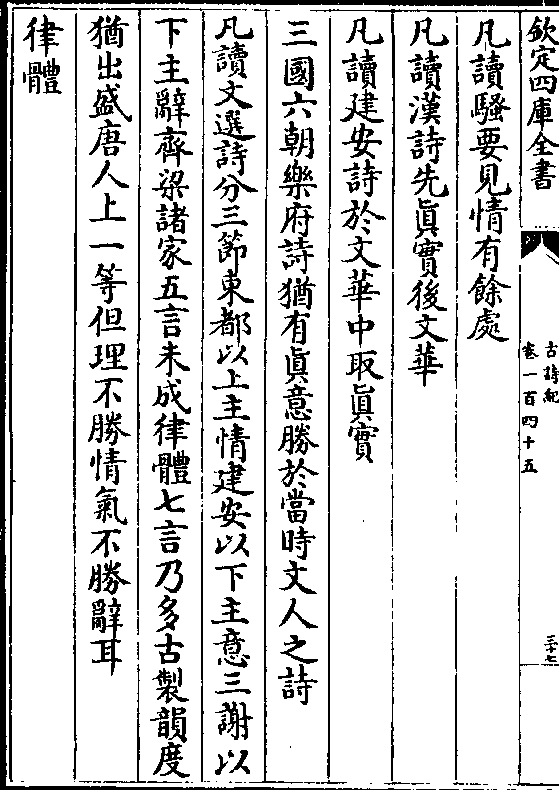 欽定四庫全書
古詩紀
卷一百四十五
三十七
凡讀騷要見情有餘處
凡讀漢詩先眞實後文華
凡讀建安詩於文華中取眞實
三國六朝樂府詩猶有眞意勝於當時文人之詩
凡讀文選詩分三節東都以上主情建安以下主意三謝以
下主辭齊梁諸家五言未成律體七言乃多古製韻度
猶出盛唐人上一等但理不勝情氣不勝辭耳
律體